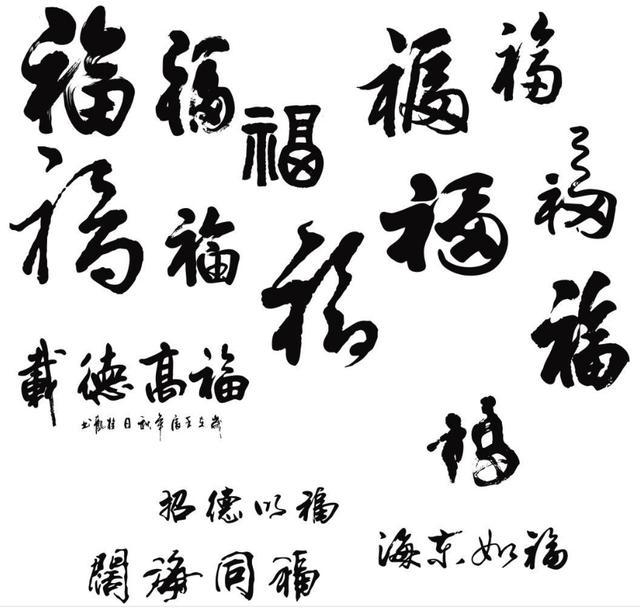 福
福
福
福
福
福
福
福
福
福
福
福
福高德載
福以德招
福如東海
福同海闊